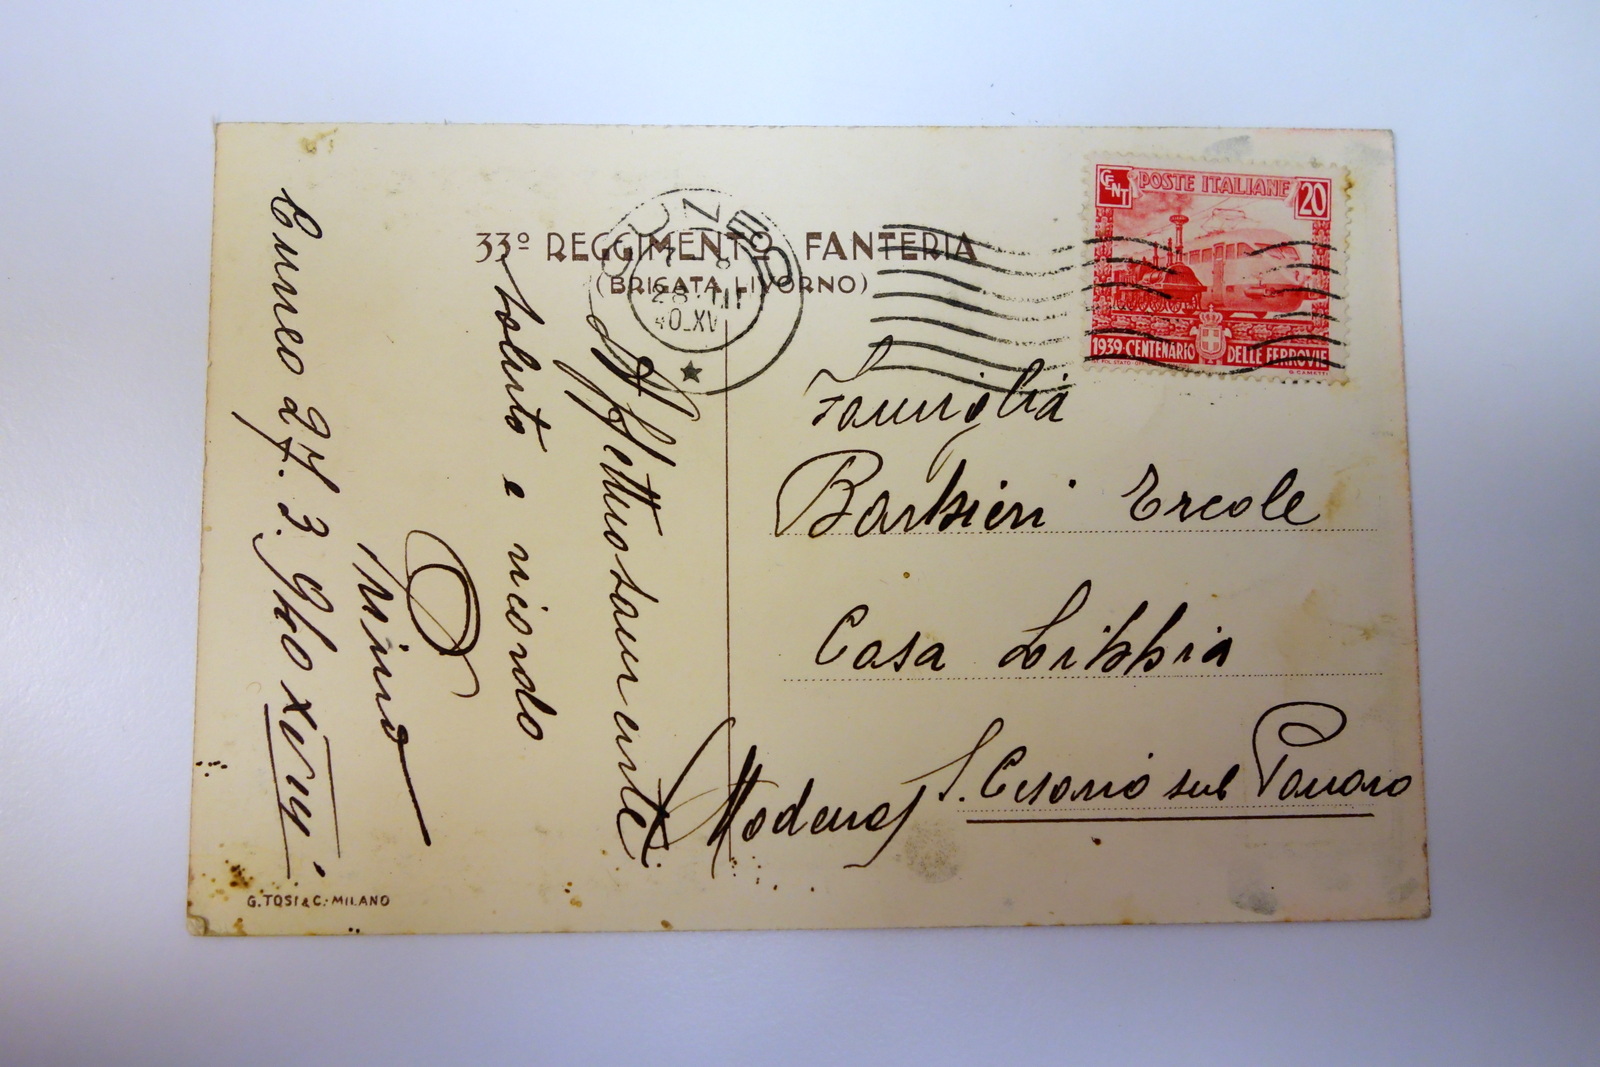 33º REGGIMENTO FANTERIA
(BRIGATA LIVORNO)
CUNEO
28 III
40 XV
CENT
POSTE ITALIANE
20
1939·CENTENARIO DELLE FERROVIE
Cuneo 27.3.940 XVIII
Affettuosamente
saluto e ricordo
Nino
Famiglia
Barbieri Ercole
Casa Libbia
S. Cesario sul Panaro
(Modena)
G. TOSI & C.-MILANO